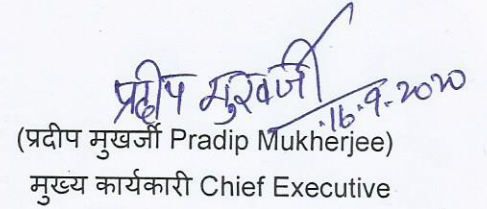 प्रदीप मुखर्जी
16.9.2020
(प्रदीप मुखर्जी Pradip Mukherjee)
मुख्य कार्यकारी Chief Executive